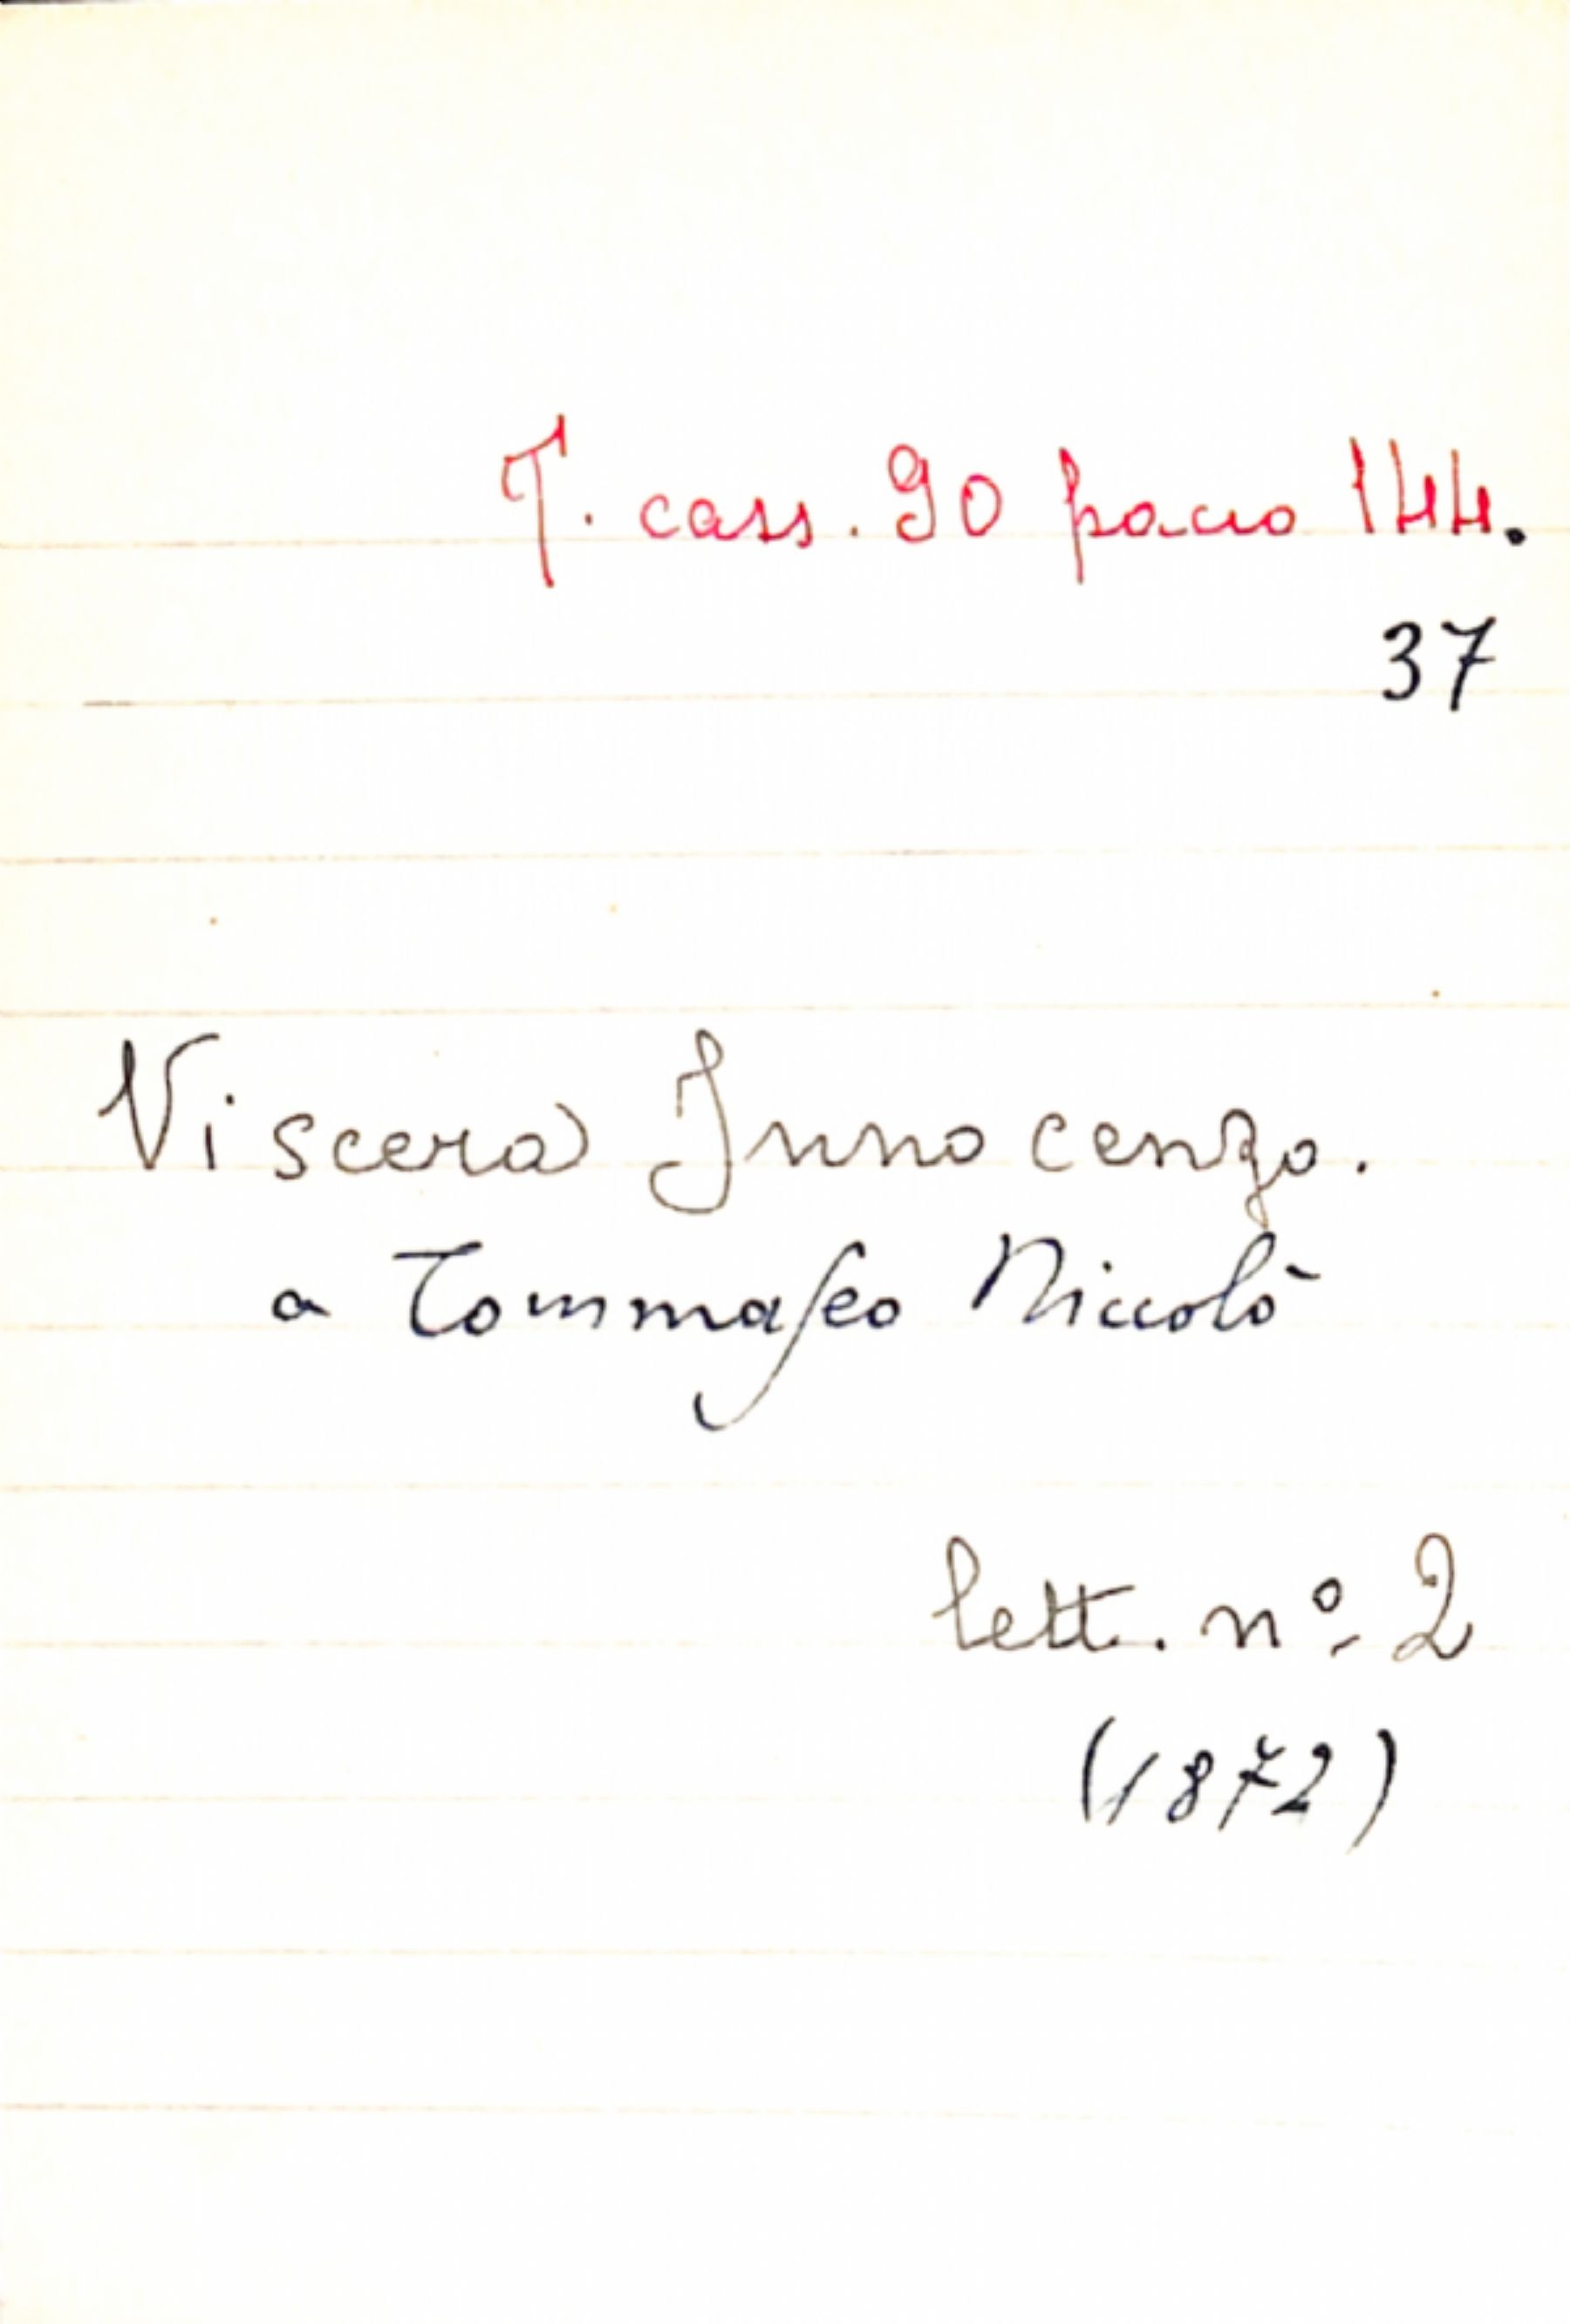 T. cass. 90 pacco 144.
37
Viscera Innocenzo.
a Tommaseo Niccolò
lett. nº 2
(1872)